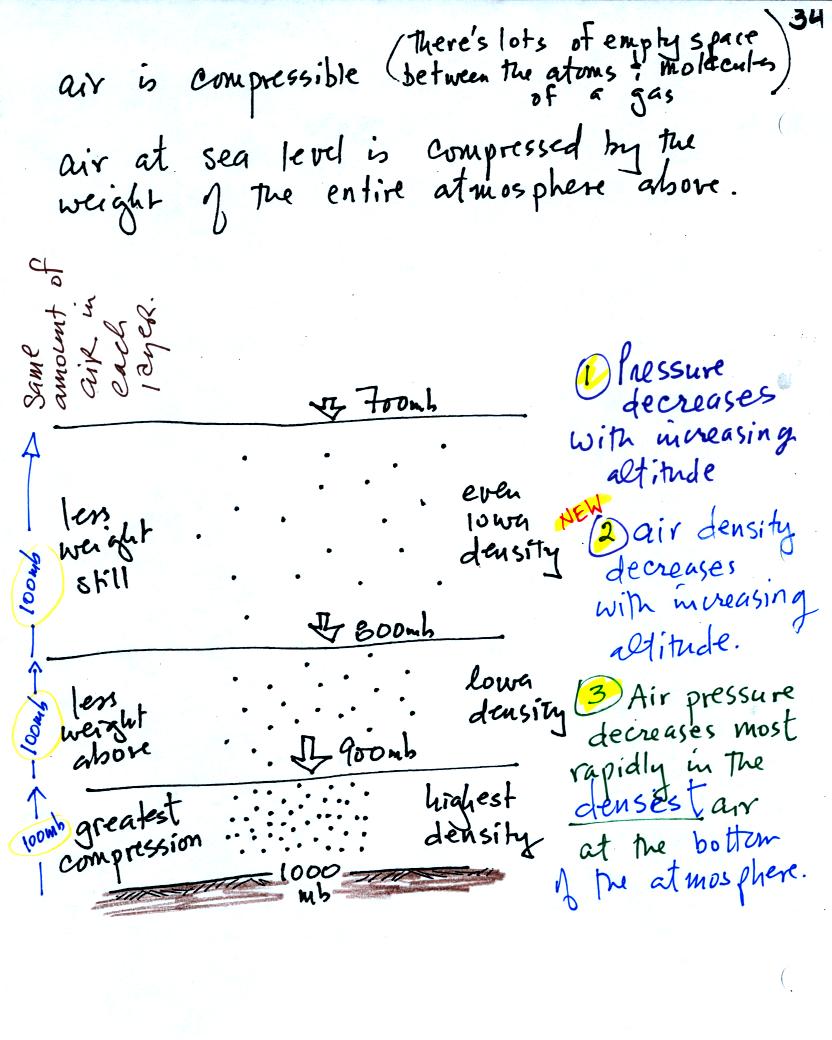 34
air is compressible (there's lots of empty space
between the atoms & molecules
of a gas)
air at sea level is compressed by the
weight of the entire atmosphere above.
Same
amount of
air in
each
layer.
700mb
less
weight
still
even
lower
density
100mb
800mb
less
weight
above
lower
density
100mb
900mb
greatest
compression
highest
density
100mb
1000
mb
1 Pressure
decreases
with increasing
altitude
NEW
2 air density
decreases
with increasing
altitude.
3 Air pressure
decreases most
rapidly in the
densest air
at the bottom
of the atmosphere.